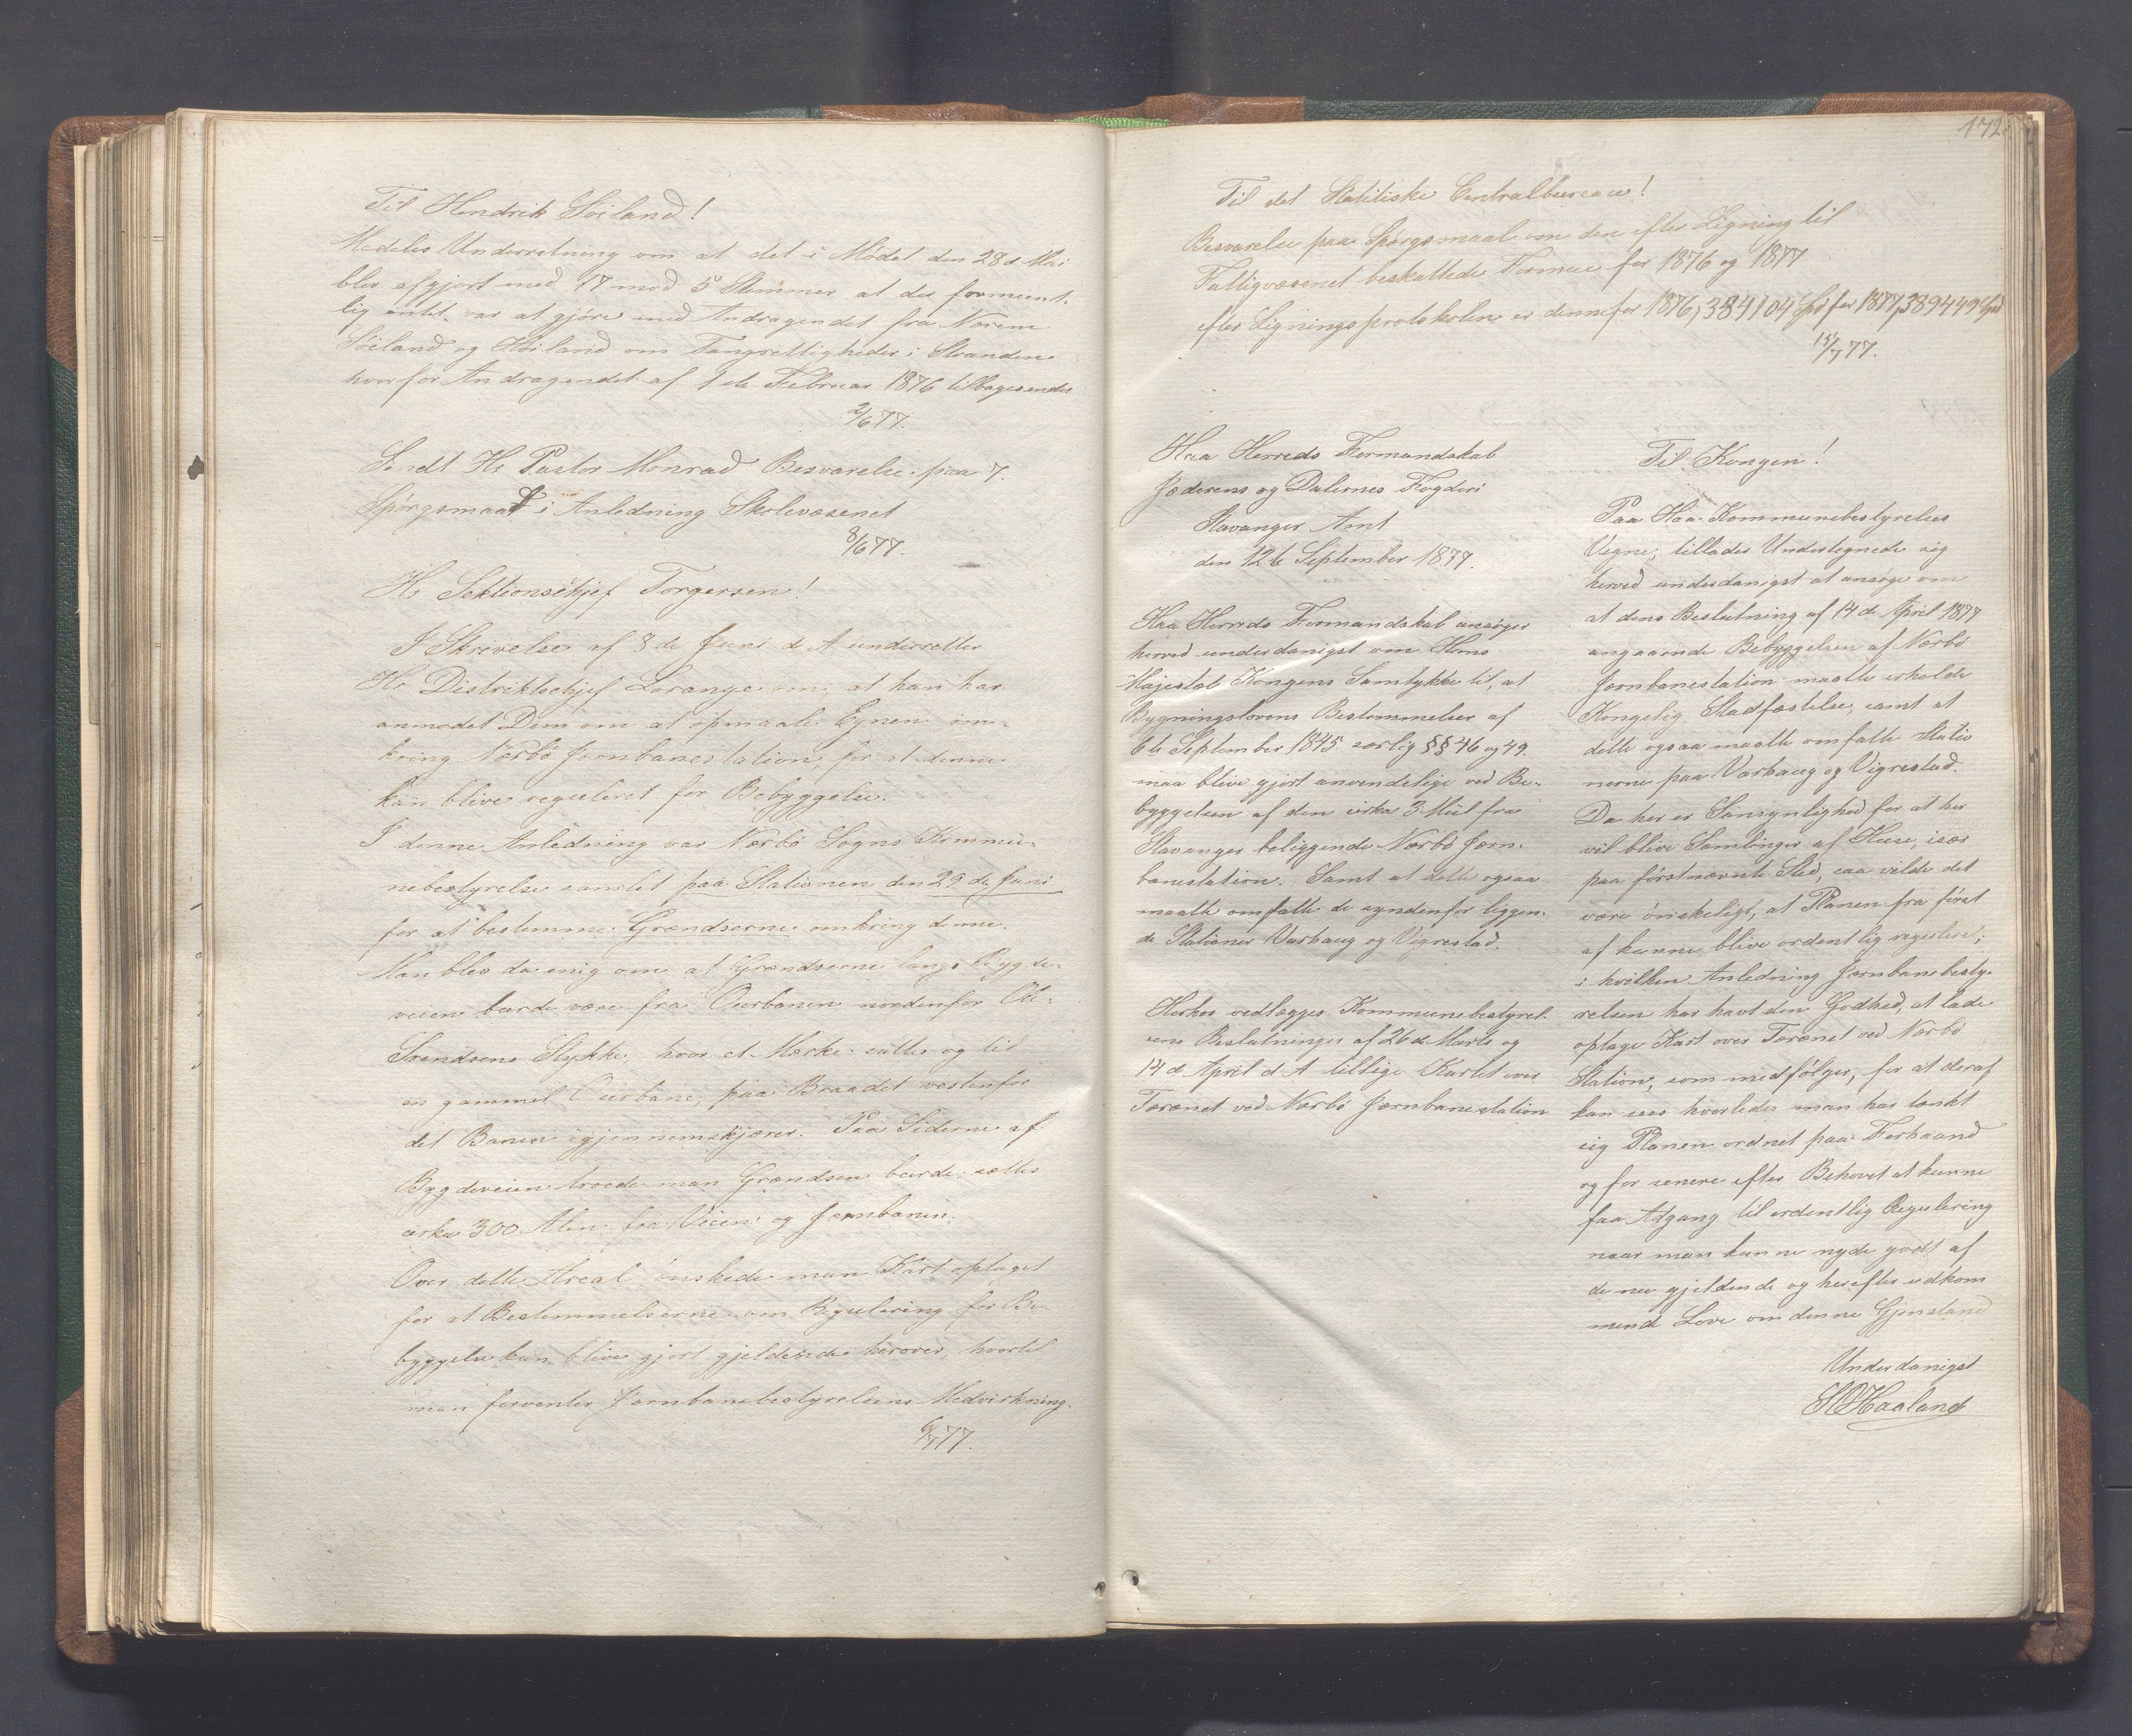 Til Hendrik Söiland!
Medeles Underretning om at det i Mödet den 28de Mai
blev afgjort med 17 mod 5 Stemmer at der formeent-
lig intet var at gjöre med Andragendet fra Narem
Söiland og Höiland om Tangrettigheder i Stranden
hvorfor Andragendet af 1ste Februar 1876 tilbagesendes
2/6 77.
Sendt Hr Pastor Monrad Besvarelse paa 7.
Spörgsmaal i Anledning Skolevæsenet
8/6 77.
Hr Sektionschef Torgersen!
I Skrivelse af 8de Juni d A underretter
Hr Distriktschef Lorange om, at han har
anmodet Dem om at opmaale Egnen om-
kring Nærbö Jernbanestation, for at denne
kan blive reguleret for Bebyggelse.
I denne Anledning var Nærbö Sogns Kommu-
nebestyrelse samlet paa Stationen den 29de Juni
for at bestemme Grændserne omkring denne.
Man blev da enig om at Grændserne langs Bygde-
veien burde være fra Overbanen nordenfor
Svendsens Stykke, hvor et Mærke sattes og til
en gammel paa Braadet vestenfor
det Banen igjennemskjærer. Paa Siderne af
Bygdeveien troede man Grændsen burde sættes
cirka 300 Alen fra Veien og Jernbanen.
Over dette Areal önskede man Kart optaget
for at Bestemmelserne om Regulering for Be-
byggelse kan blive gjort gjeldende herover, hvortil
man forventer Jernbanebestyrelsens Medvirkning.
6/7 77.
172.
Til det Statitiske Centralbureau!
Besvarelse paa Spörgsmaal om den efter Ligning til
Fattigvæsenet beskattede Formue for 1876 og 1877
efter Ligningsprotokolen er denne for 1876, 384104 Spd for 1877, 389449 Spd
15/7 77.
Haa Herreds Formandskab
Jæderens og Dalernes Fogderi
Stavanger Amt
den 12te September 1877.
Haa Herreds Formandskab ansöger
herved underdanigst om Hans
Majestæt Kongens Samtykke til, at
Bygningslovens Bestemmelser af
6te September 1845 særlig §§ 46 og 49.
maa blive gjort anvendelige ved Be-
byggelsen af den cirka 3 Mil fra
Stavanger beliggende Nærbö Jern-
banestation. Samt at dette ogsaa
maatte omfatte de syndenfor liggen-
de Stationer Varhaug og Vigrestad.
Herhos vedlægges Kommunebestyrel-
sens Beslutninger af 26de Marts og
14de April d A tillige Kartet over
Terænet ved Nærbö Jernbanestation
Til Kongen!
Paa Haa Kommunebestyrelses
Vegne, tillader Undertegnede sig
herved underdanigst at ansöge om
at dens Beslutning af 14de April 1877
angaaende Bebyggelsen af Nærbö
Jernbanestation maatte erholde
Kongelig Stadfæstelse, samt at
dette ogsaa maatte omfatte Statio
nerne paa Varhaug og Vigrestad.
Da her er Sansynlighed for at her
vil blive Samlinger af Huse, især
paa förstnævnte Sted, saa vilde det
være önskeligt, at Planen fra först
af kunne blive ordentlig reguleret;
i hvilken Anledning Jernbanebesty-
relsen har havt den Godhed, at lade
optage Kart over Terænet ved Nærbö
Station, som medfölger, for at deraf
kan sees hvorledes man har tænkt
sig Planen ordnet paa Forhaand
og for senere efter Behovet at kunne
faa Adgang til ordentlig Regulering
naar man kunne nyde godt af
de nu gjeldende og herefter udkom
mende Love om denne Gjenstand
Underdanigst
Haaland